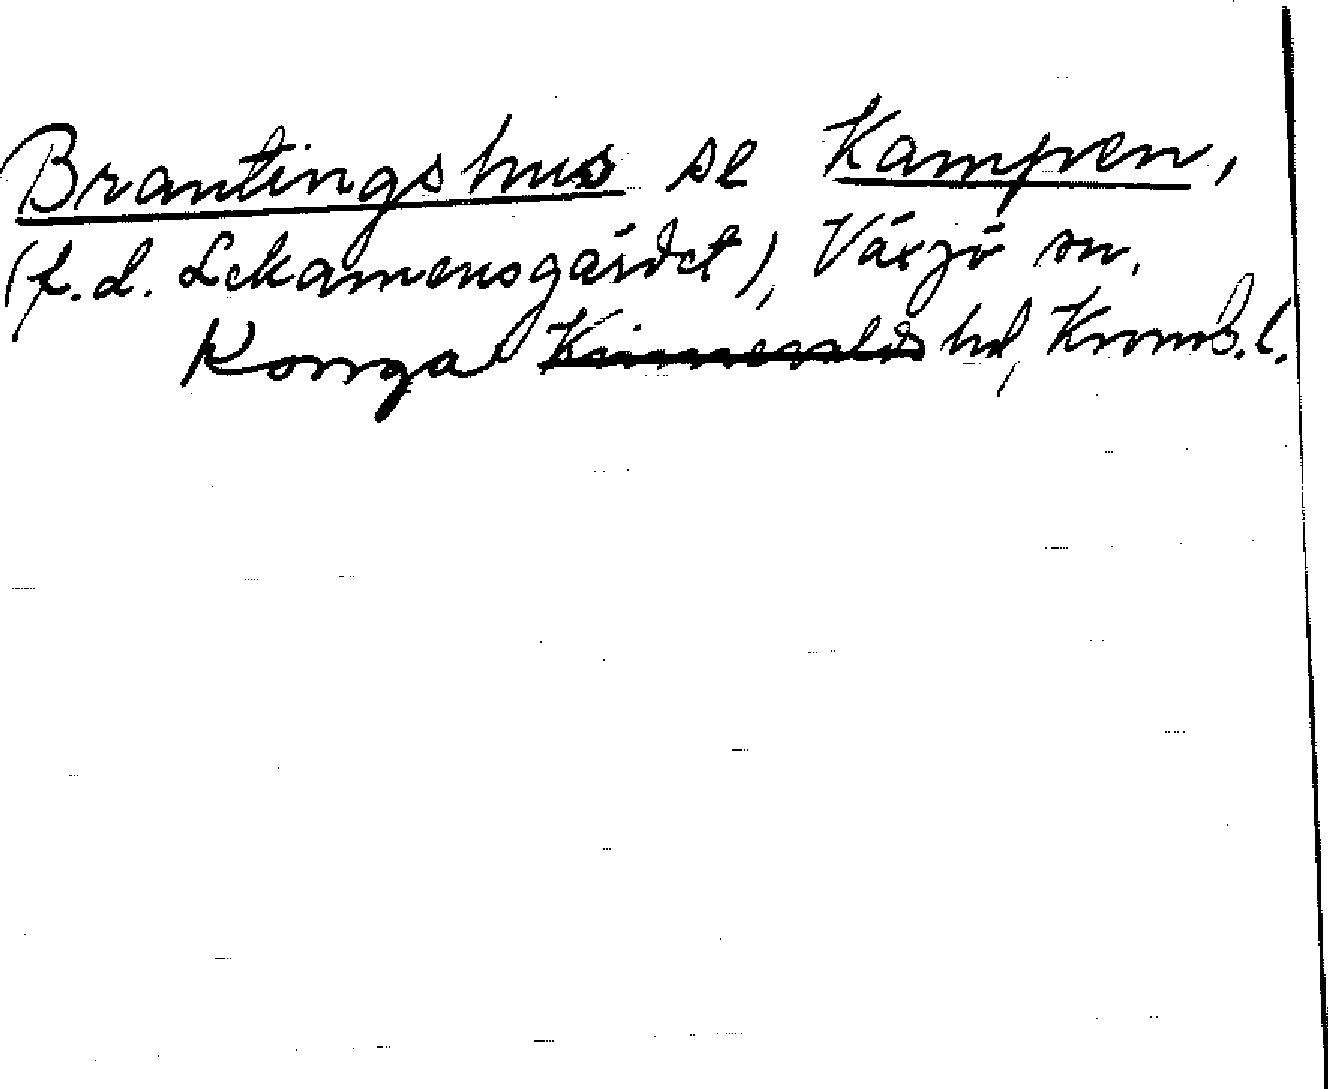 Brantingshus se Kampen,
(f.d. Lekamensgärdet), Växjö sn,
Konga Kinnevalds hd, Kronob.l.